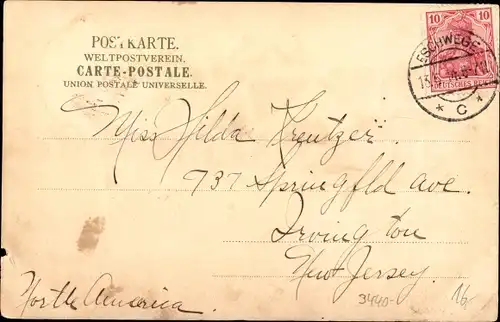 POSTKARTE.
WELTPOSTVEREIN.
CARTE-POSTALE.
UNION POSTALE UNIVERSELLE.
10 10
DEUTSCHES
ESCHWEGE
* C *
Miss Hilda Kreutzer.
737 Springfld Ave.
Irving ton
New Jersey.
North America.
3440-
16.